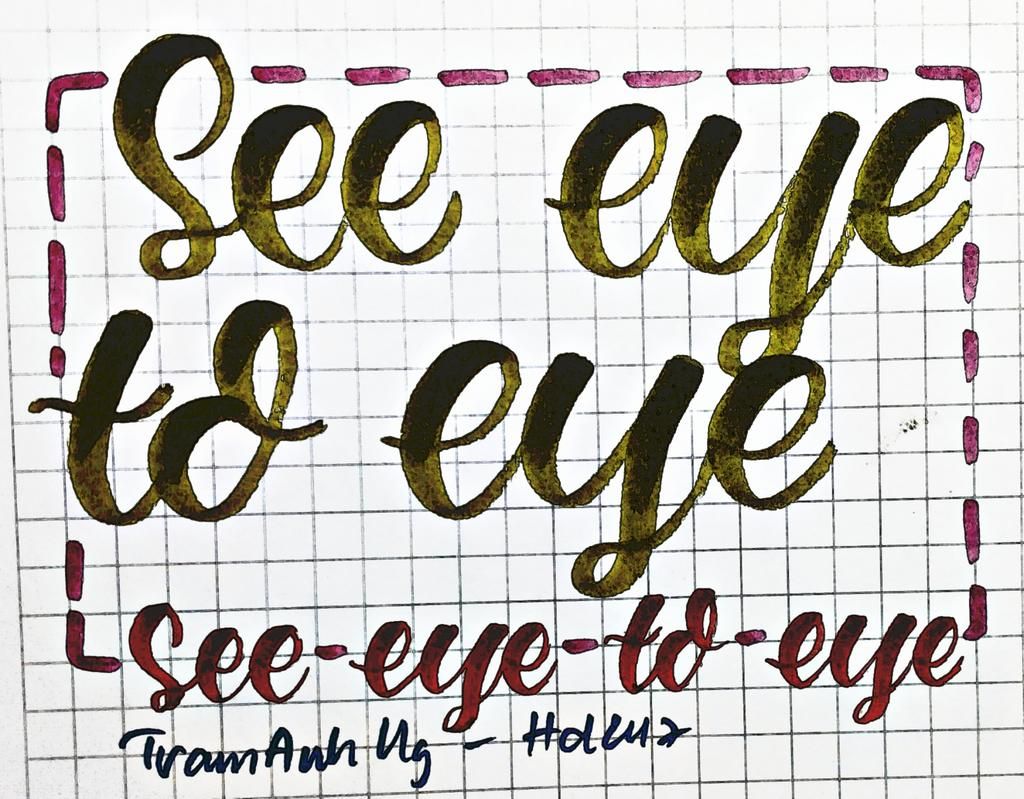 See eye
to eye
See-eye-to-eye
TramAnh Ng -